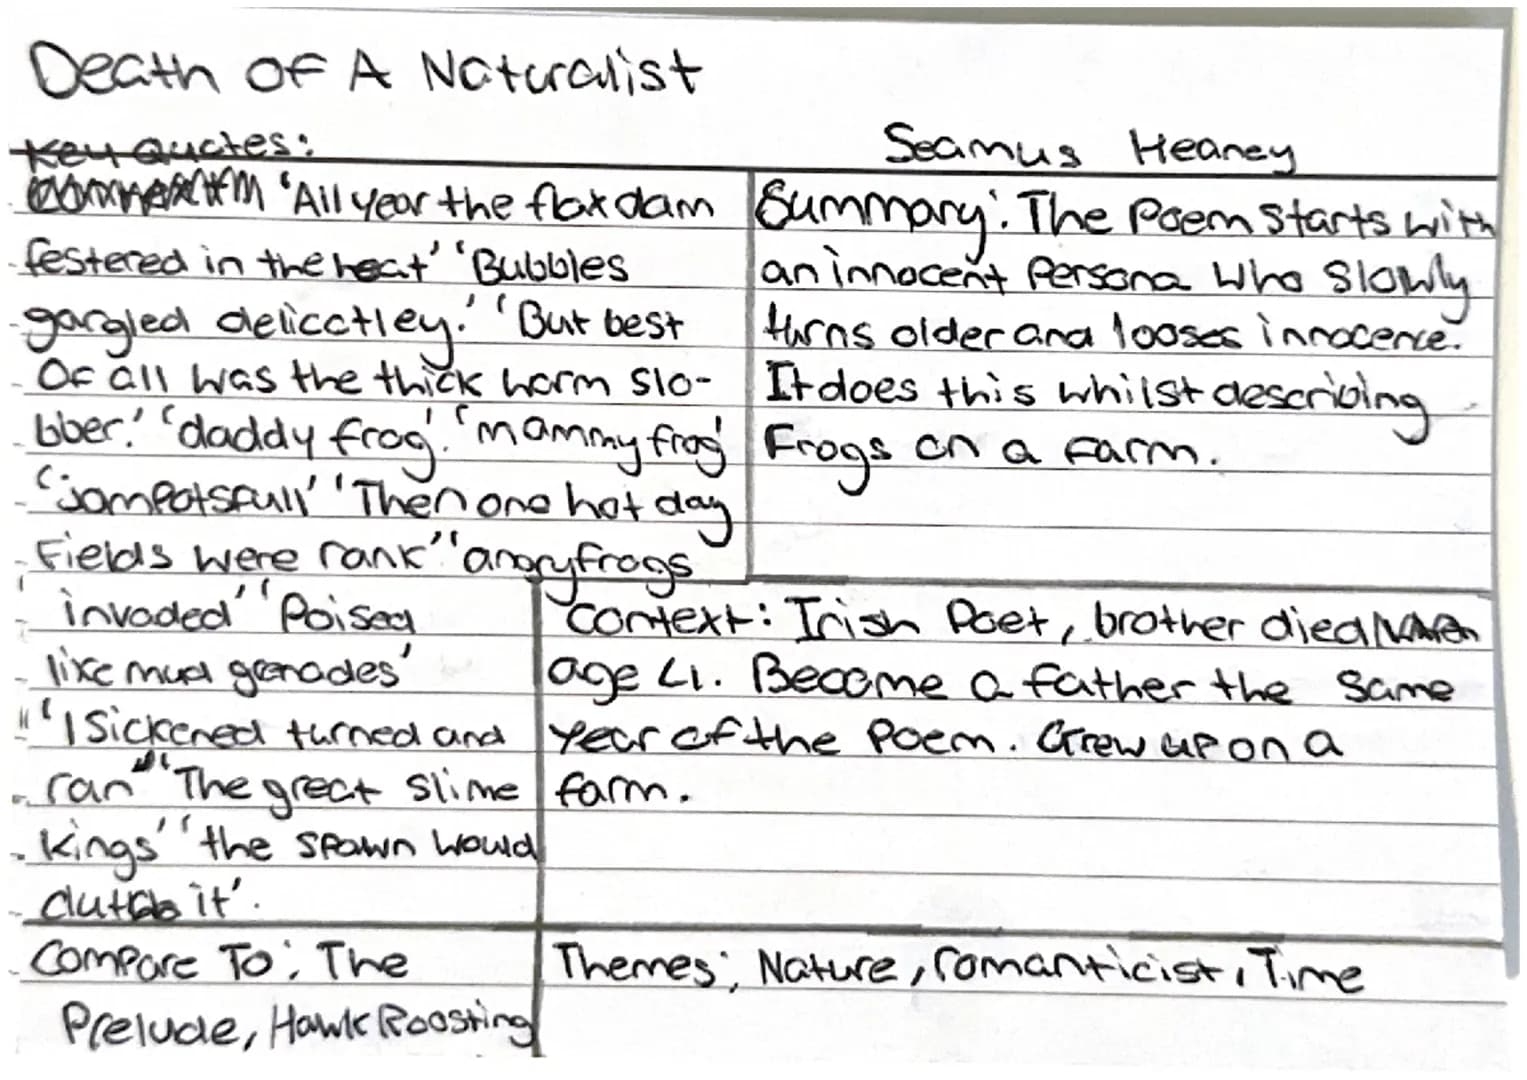 Death of A Naturalist
Seamus Heaney
Key Quotes:
'All year the flax dam
festered in the heat' 'Bubbles
gargled delicatley.' 'But best
Of all was the thick warm slo-
bber.' 'daddy frog'. 'mammy frog'
'jampotsfull' 'Then one hot day
Fields were rank' 'angry frogs
invaded' 'Poised
like mud grenades'
'I Sickened turned and
ran' 'The great slime
kings' 'the spawn would
clutch it'.
Summary: The Poem starts with
an innocent Persona who slowly
turns older and looses innocence.
It does this whilst describing
Frogs on a farm.
Context: Irish Poet, brother died
age 4. Became a father the same
year of the poem. Grew up on a
farm.
Compare To: The
Prelude, Hawk Roosting
Themes: Nature, romanticist, Time